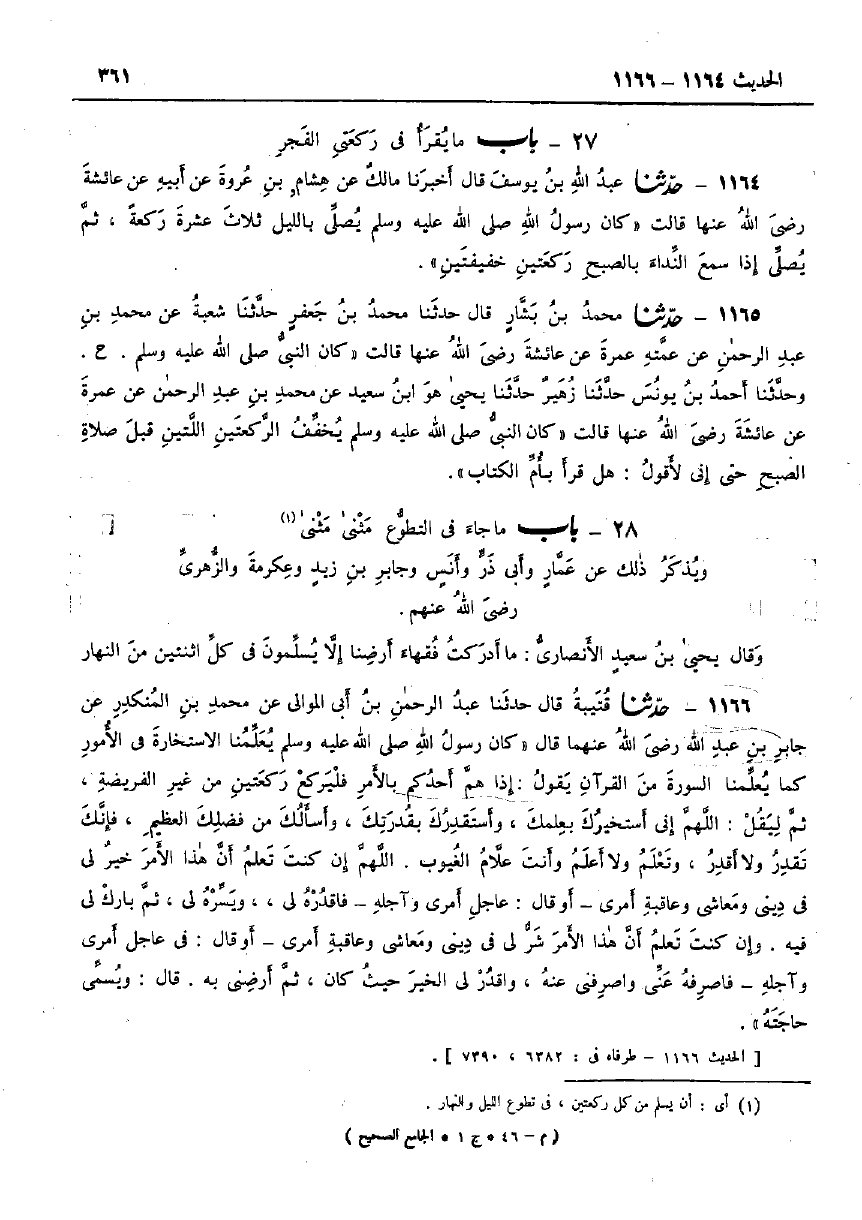 الحديث ١١٦٤ – ١١٦٦ ٣٦١
٢٧ – باب ما يُقرَأُ فى رَكعَتىِ الفَجرِ
١١٦٤ – حدّثنا عبدُ اللهِ بنُ يوسفَ قال أخبرَنا مالكٌ عن هِشامِ بنِ عُروةَ عن أبيهِ عن عائشةَ
رضىَ اللهُ عنها قالت «كان رسولُ اللهِ صلى الله عليه وسلم يُصلِّى بالليلِ ثلاثَ عشرةَ رَكعةً ، ثمَّ
يُصلِّى إذا سمعَ النِّداءَ بالصبحِ رَكعَتينِ خفيفتَينِ» .
١١٦٥ – حدّثنا محمدُ بنُ بَشَّارٍ قال حدثَنا محمدُ بنُ جَعفرٍ حدَّثَنا شعبةُ عن محمدِ بنِ
عبدِ الرحمٰنِ عن عمَّتهِ عمرةَ عن عائشةَ رضىَ اللهُ عنها قالت «كان النبىُّ صلى الله عليه وسلم . ح .
وحدَّثَنا أحمدُ بنُ يونُسَ حدَّثَنا زُهَيرٌ حدَّثَنا يحيىٰ هوَ ابنُ سعيد عن محمدِ بنِ عبدِ الرحمٰن عن عمرةَ
عن عائشَةَ رضىَ اللهُ عنها قالت «كان النبىُّ صلى الله عليه وسلم يُخفِّفُ الرَّكعتَينِ اللَّتينِ قبلَ صلاةِ
الصبحِ حتى إنى لأَقولُ : هل قرأ بأُمِّ الكتاب» .
٢٨ – باب ما جاءَ فى التطوُّعِ مَثْنىٰ مَثْنىٰ (١)
ويُذكَرُ ذٰلك عن عَمَّارٍ وأبى ذَرٍّ وأنَسٍ وجابرِ بنِ زيدٍ وعِكرمةَ والزُّهرىِّ
رضىَ اللهُ عنهم .
وَقال يحيىٰ بنُ سعيدٍ الأنصارىُّ : ما أدرَكتُ فُقهاءَ أرضِنا إلَّا يُسلِّمونَ فى كلِّ اثنتينِ منَ النهار
١١٦٦ – حدّثنا قُتَيبةُ قال حدثَنا عبدُ الرحمٰنِ بنُ أبى الموالى عن محمدِ بنِ المُنكدِرِ عن
جابرِ بنِ عبدِ الله رضىَ اللهُ عنهما قال «كان رسولُ اللهِ صلى الله عليه وسلم يُعَلِّمُنا الاستخارةَ فى الأُمورِ
كما يُعلِّمنا السورةَ منَ القرآنِ يَقولُ : إذا همَّ أحدُكم بالأمرِ فلْيَركعْ رَكعَتينِ من غيرِ الفريضةِ ،
ثمَّ لِيَقُلْ : اللّهمَّ إنى أَستخيرُكَ بعِلمكَ ، وأستَقدِرُكَ بقُدرَتِكَ ، وأسألُكَ من فضلِكَ العظيمِ ، فإنَّكَ
تَقدِرُ ولا أقدِرُ ، وتَعْلَمُ ولا أَعلَمُ وأنتَ علَّامُ الغُيوبِ . اللّهمَّ إن كنتَ تَعلمُ أنَّ هٰذا الأمرَ خيرٌ لى
فى دِينى ومَعاشى وعاقبةِ أمرى – أو قال : عاجلِ أمرى وآجلهِ – فاقدُرْهُ لى ، ، ويَسِّرْهُ لى ، ثمَّ باركْ لى
فيه . وإن كنتَ تَعلمُ أنَّ هٰذا الأمرَ شرٌّ لى فى دِينى ومَعاشى وعاقبةِ أمرى – أو قال : فى عاجلِ أمرى
وآجلهِ – فاصرِفهُ عَنِّى واصرِفنى عنهُ ، واقدُرْ لى الخيرَ حيثُ كان ، ثمَّ أَرضِنى به . قال : ويُسمِّى
حاجَتَهُ» .
[ الحديث ١١٦٦ – طرفاه فى : ٦٣٨٢ ، ٧٣٩٠ ] .
(١) أى : أن يسلم من كل ركعتين ، فى تطوع الليل والنهار .
( م – ٤٦ * ج ١ * الجامع الصحيح )